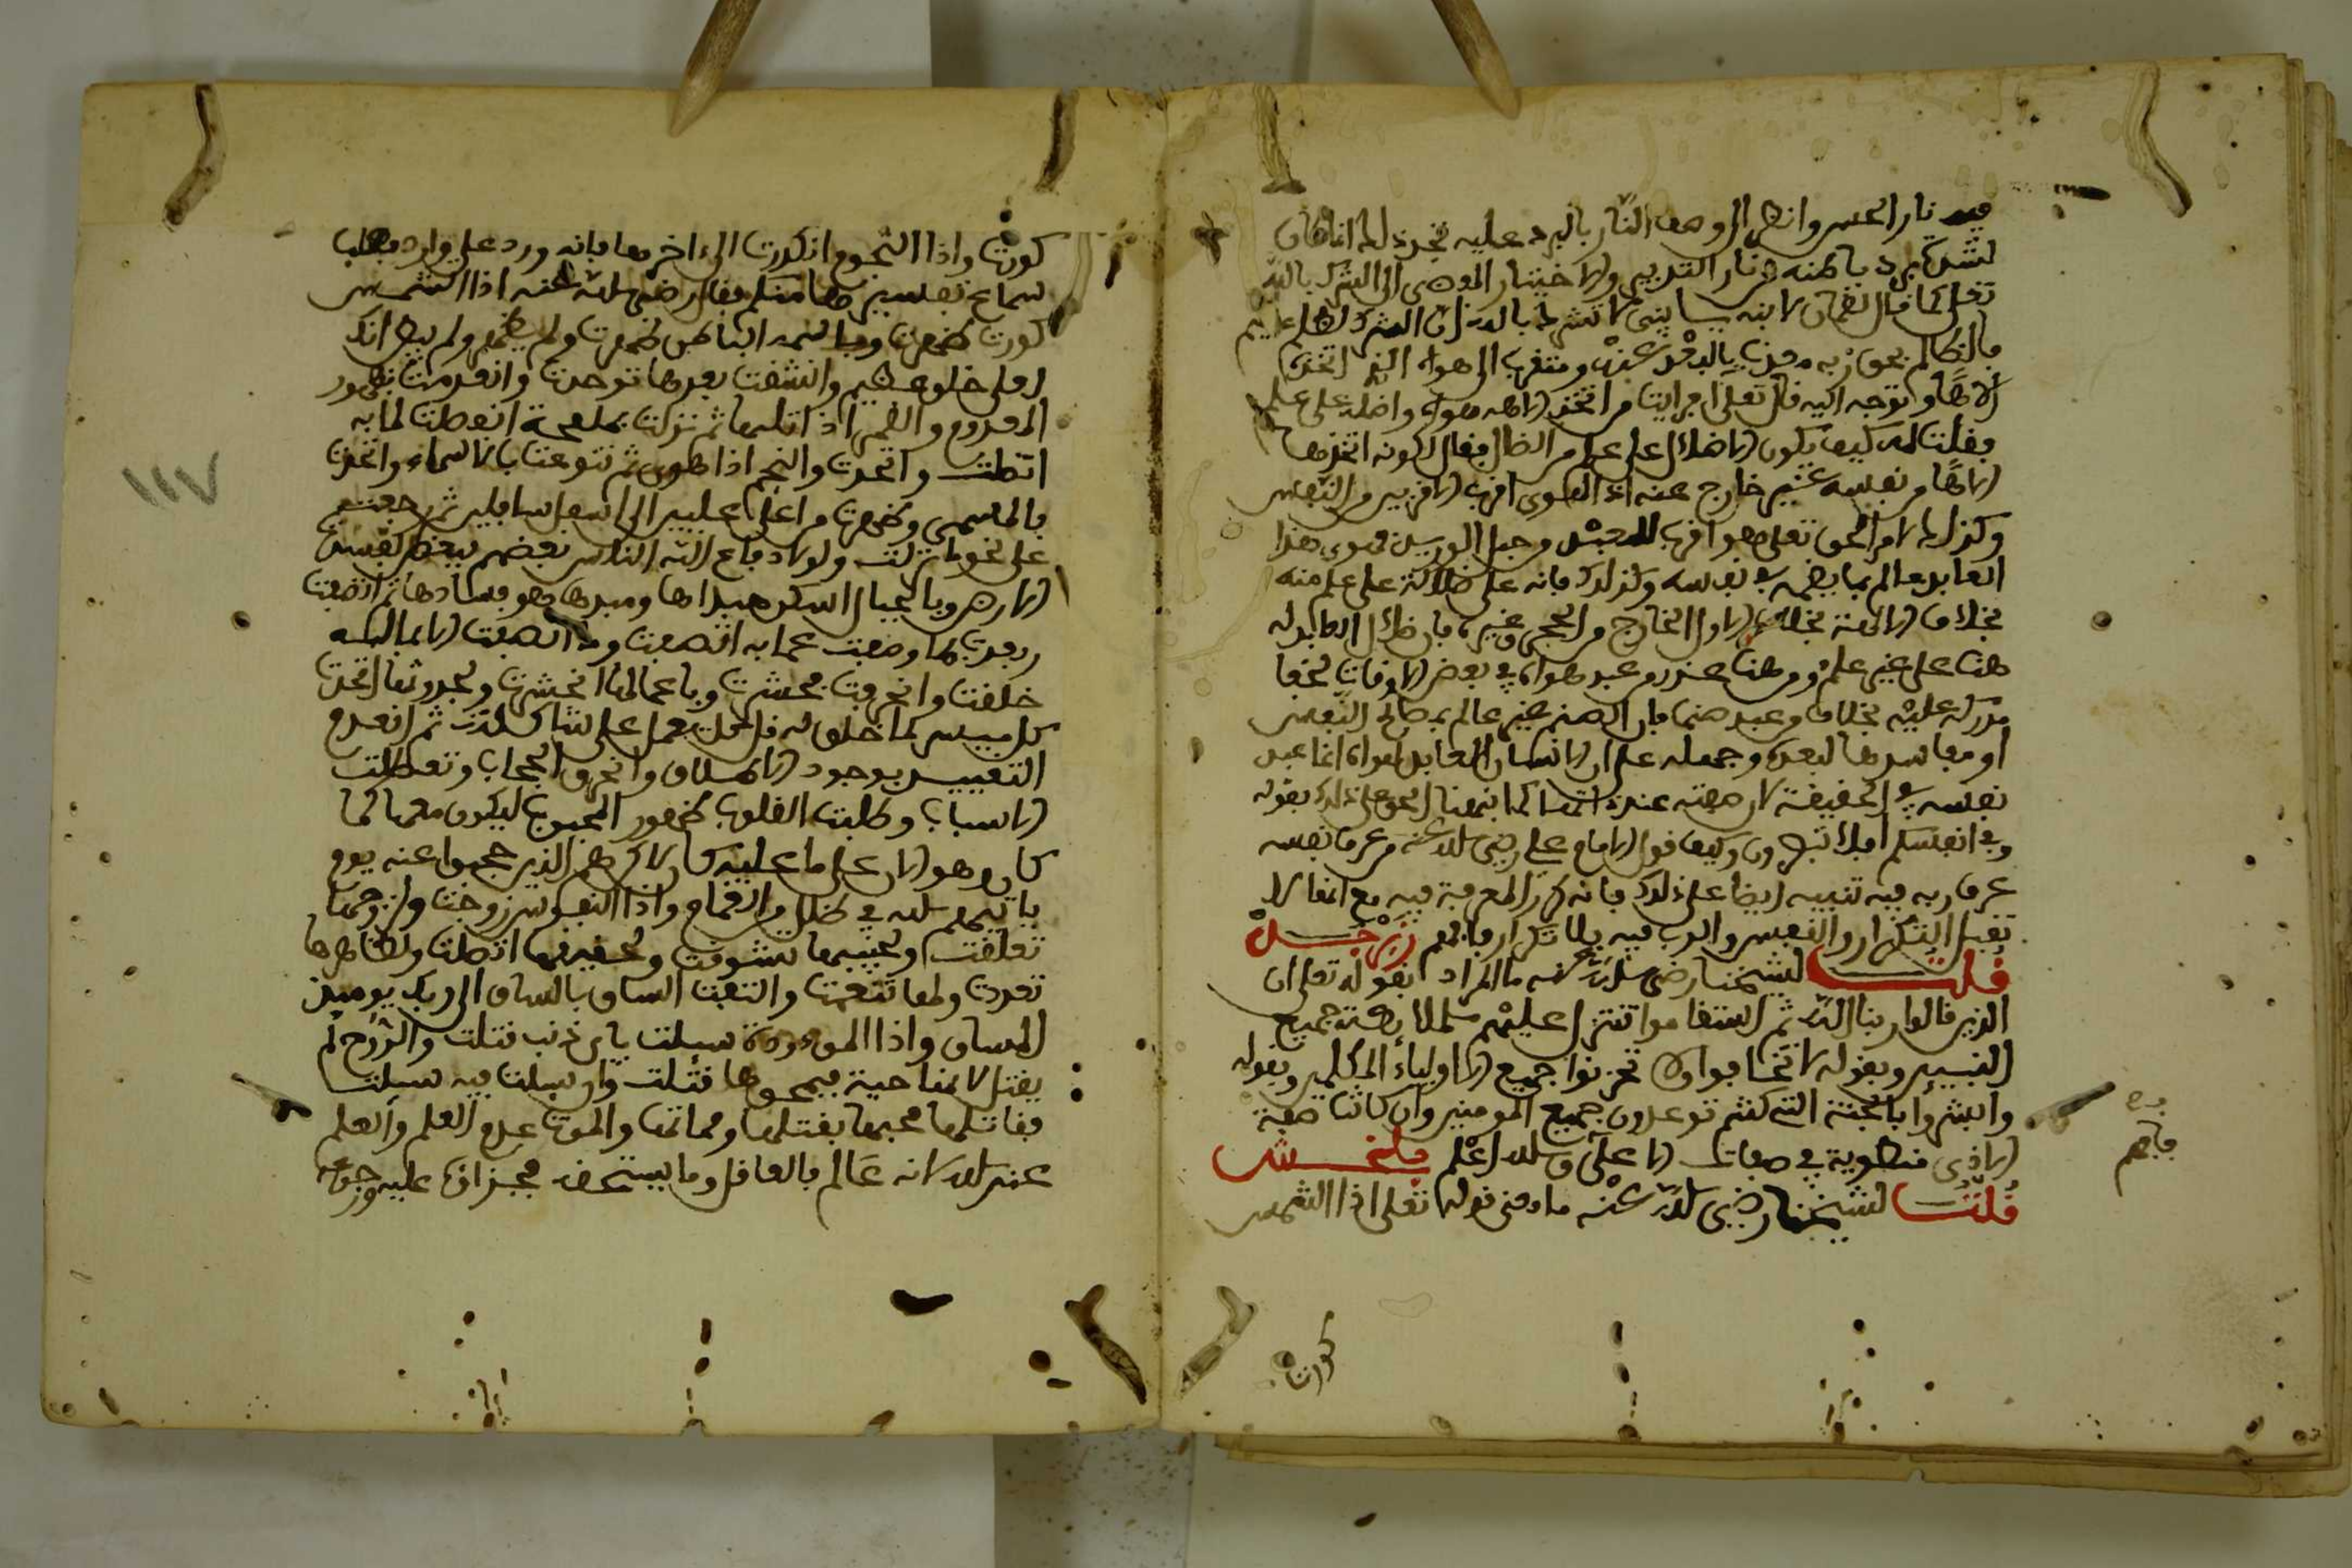 فيه نار الحس وانظر الى وصف النار بالبرد عليه تجد ذلك انما كان
لشدة برد باطنه من نار التدبير والاختيار المفضي الى الشرك بالله
تعلى كما قال لقمان لابنه يا بني لا تشرك بالله ان الشرك لظلم عظيم
فالظالم بحق ربه معذب بالبعد عنه ومتقرب الى هواه الذي اتخذه
الاها وتوجه اليه قال تعلى افرايت من اتخذ الاهه هواه واضله على علم
فقلت له كيف يكون الاضلال على علم من الضال فقال لكونه اتخذها
الاها من نفسه غير خارج عنه اذ الهوى اقرب الاقربين من النفس
وكذلك الامر الحق تعلى هو اقرب للعبد من حبل الوريد فهوى هذا
العابد عالم بما يضمه في نفسه وكذلك فانه على ضلالة على علم منه
بخلاف الالهة بخلاف الاول الخارج من الحجر وغيره فان ضلال العابد له
هنا على غير علم ومن هنا عذر من عبد هواه في بعض الاوقات لخفا
مدركه عليه بخلاف من عبد صنما فان الصنم غير عالم بمصالح النفس
او مفاسدها لبعده وجهله على ان الانسان العابد لهواه انما عبد
نفسه في الحقيقة لان صفته عنده اتمها كما نبهنا الحق على ذلك بقوله
وفي انفسكم افلا تبصرون وكيف قول الامام علي رضي الله عنه من عرف نفسه
عرف ربه فيه تنبيه ايضا على ذلك فانه كرر المعرفة فيه مع انها لا
تقبل التكرار والنفس والرب فيه بلا تكرار فافهم زبرجد
قلت لشيخنا رضي الله عنه ما المراد بقوله تعلى ان
الذين قالوا ربنا الله ثم استقاموا تتنزل عليهم الملائكة جميع
النبيين وبقوله لا تخافوا ولا تحزنوا جميع الاولياء المكلمين وبقوله
وابشروا بالجنة التي كنتم توعدون جميع المومنين وان كانت صفة
الادنى منطوية في صفات الاعلى والله اعلم بلخش
قلت لشيخنا رضي الله عنه ما معنى قوله تعلى اذا الشمس
كورت
كورت واذا النجوم انكدرت الى اخرها فانه ورد على وارد فطلب
سماع تفسيرها منكم فقال رضي الله عنه اذا الشمس
كورت ظهرت وباسمه الباطن ظهرت ولم يظهر ولم يبطن انك
لعلى خلق عظيم وانشقت بعدها توحدت وانعدمت بظهور
المعدوم والقمر اذا تليها ثم نزلت بملعحة انفصلت لما به
اتصلت واتحدت والنجم اذا هوى ثم تنوعت بالاسماء واتحدت
بالمسمى وظهرت من اعلى عليين الى اسفل سافلين ثم رجعت
على نحو ما نزلت ولولا دفاع الله الناس بعضهم ببعض لفسدت
الارض وبالجبال اسكن ميدها وميدها هو فسادها ثم اتصفت
وبعدت بها وصفت عما به اتصفت وما اتصفت الا بما له
خلقت وانحرفت فحشرت وباعمالها انحشرت ولحدوثها اتحدت
كل ميسر لما خلق له قل كل يعمل على شاكلته ثم انعدم
التقييد بوجود الاطلاق وانخرق الحجاب وتعطلت
الاسباب وطلبت القلوب ظهور المحبوب ليكون معها كما
كان وهو الان على ما عليه كان لاكنهم الذين حجبوا عنه يوم
ياتيهم الله في ظلل من الغمام واذا النفوس زوجت ولزوجها
تعلقت ولحبيبها تشوقت ولحقيرها اتصلت ولظاهرها
تعددت ولها تنعمت والتفت الساق بالساق الى ربك يوميذ
المساق واذا الموءودة سيلت باي ذنب قتلت والروح لم
يقتل لانها حية فبمحوها قتلت وان سيلت فبه سيلت
فقاتلها محييها بقتلها ومماتها والموت عدم العلم والعلم
عند الله لانه عالم بالقاتل وما يستحقه فجزاؤه عليه ورجوعه